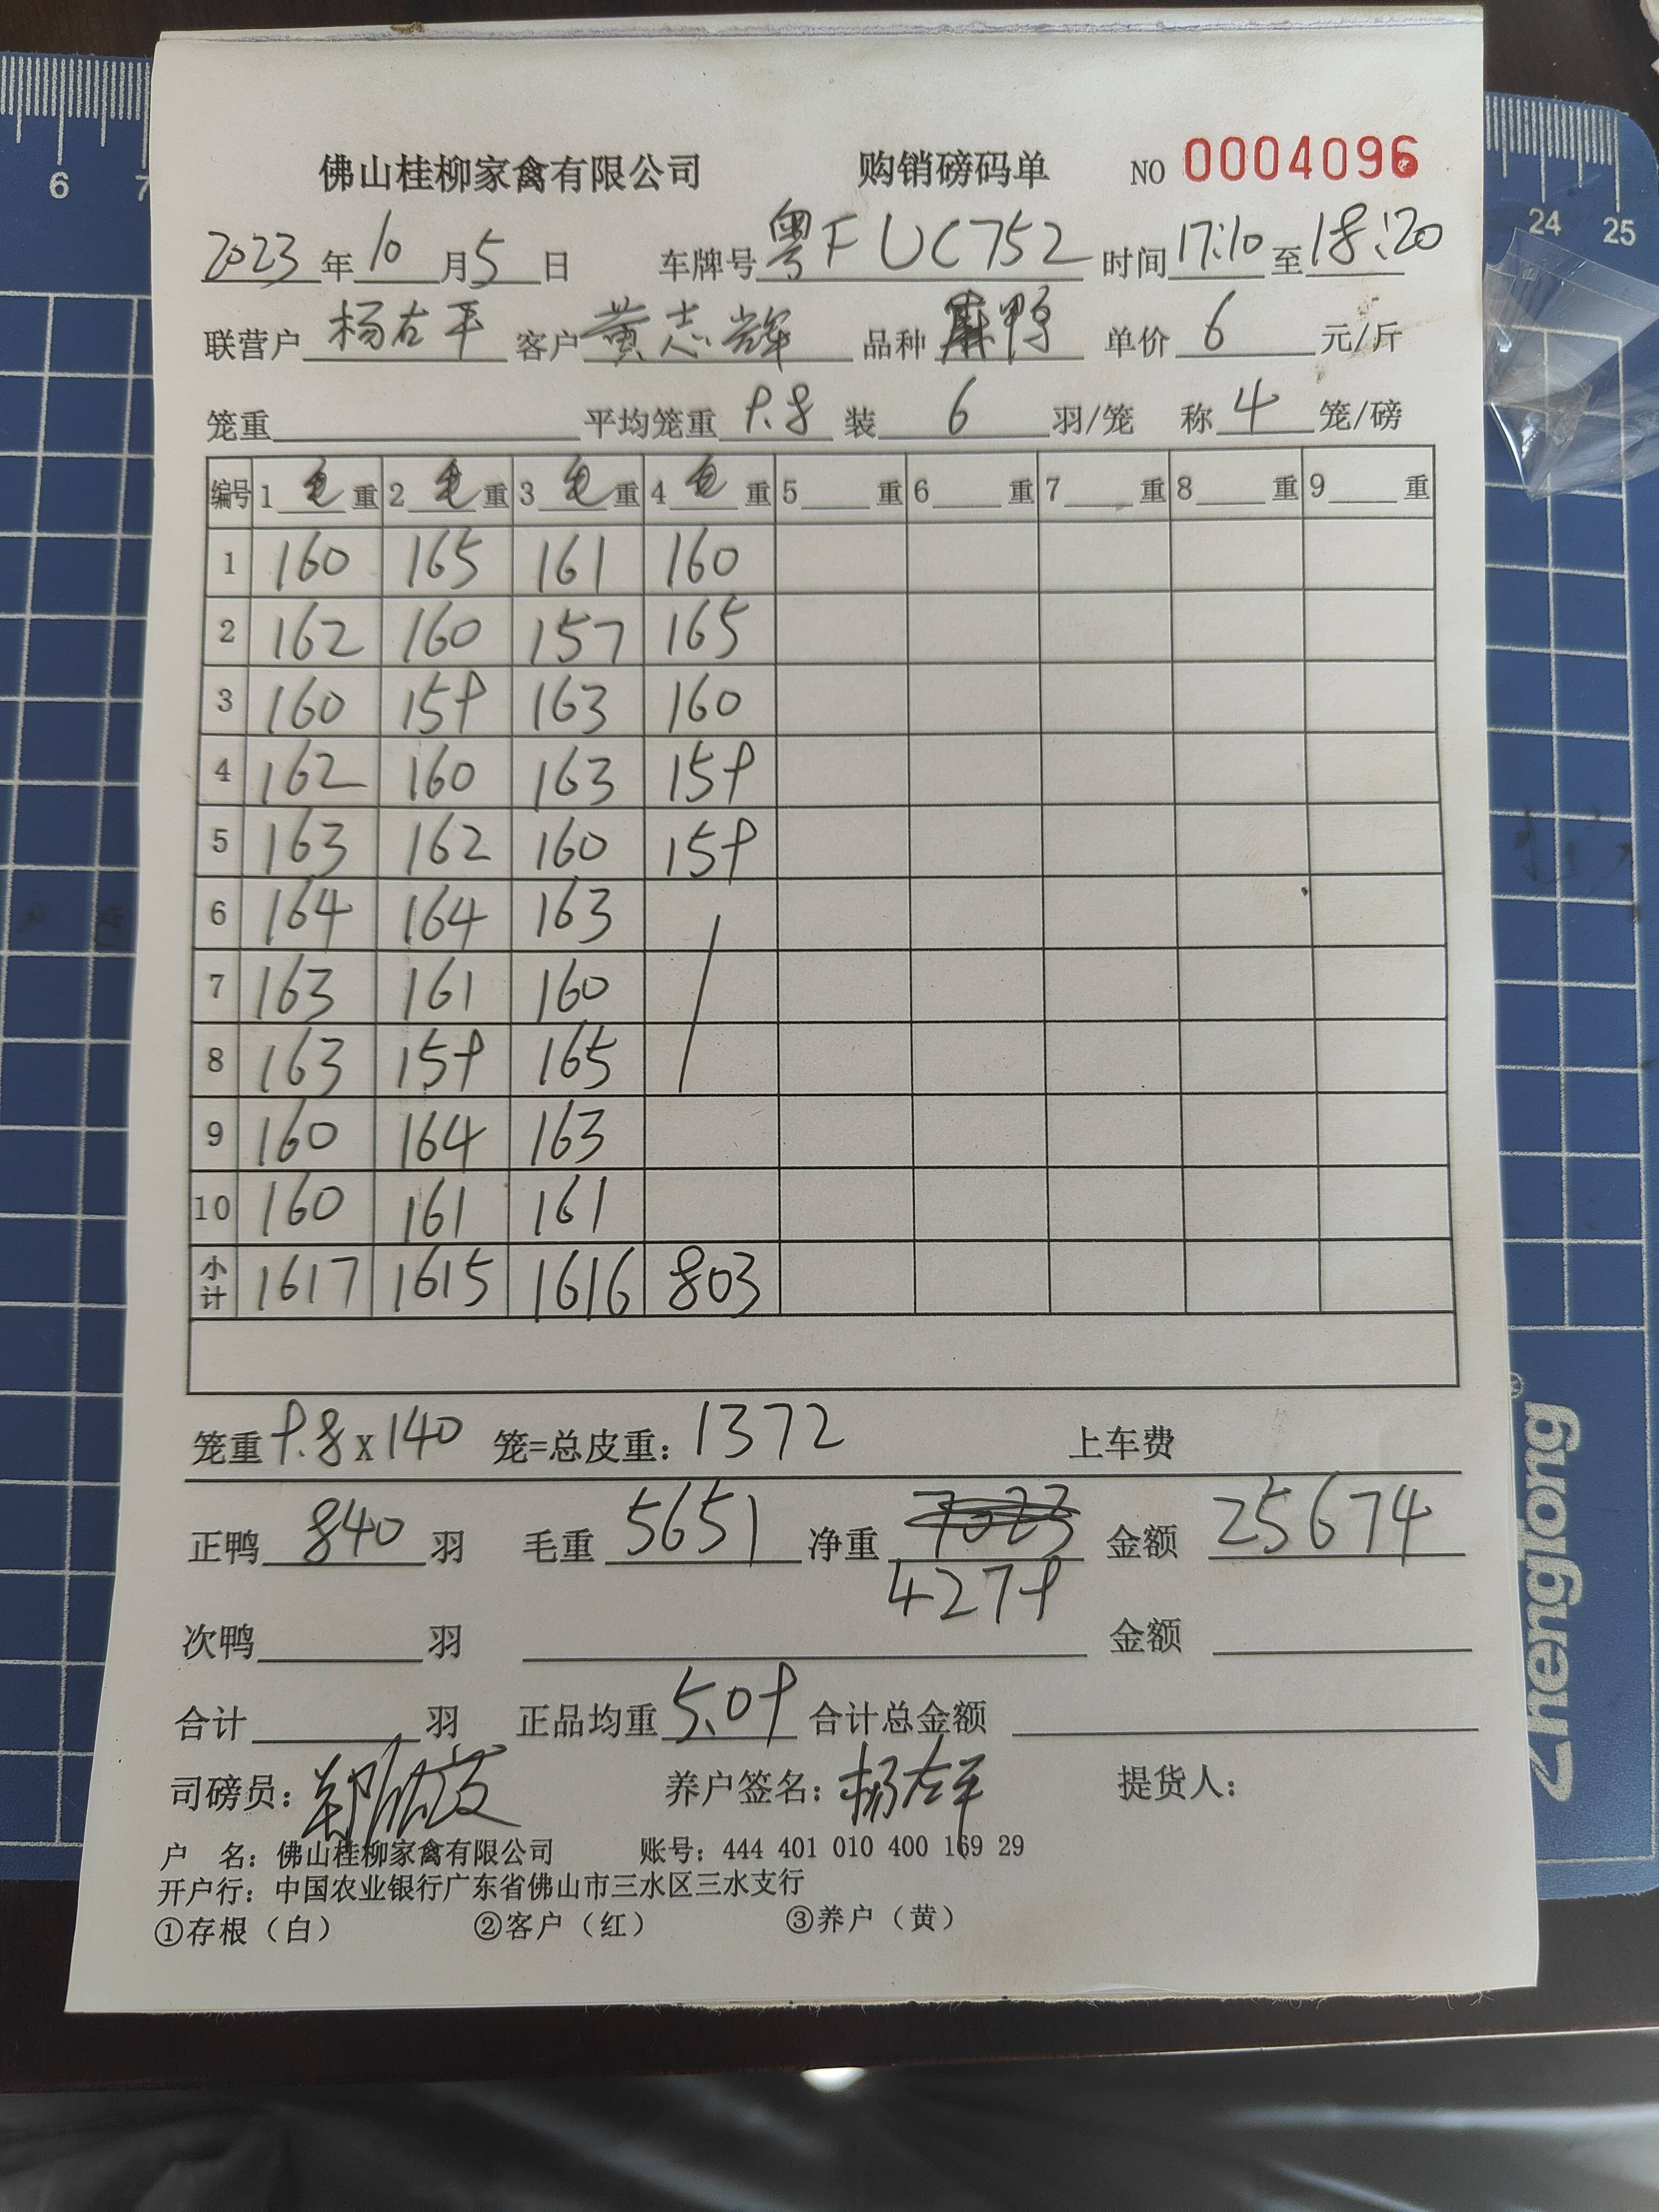 佛山桂柳家禽有限公司 购销磅码单 NO 0004096
2023年10月5日 车牌号粤FUC752 时间17:10至18:20
联营户杨右平 客户黄志辉 品种麻鸭 单价6元/斤
笼重 平均笼重9.8 装6羽/笼 称4笼/磅
编号 1毛重 2毛重 3毛重 4毛重 5重 6重 7重 8重 9重
1 160 165 161 160
2 162 160 157 165
3 160 159 163 160
4 162 160 163 159
5 163 162 160 159
6 164 164 163
7 163 161 160
8 163 159 165
9 160 164 163
10 160 161 161
小计 1617 1615 1616 803
笼重9.8x140 笼=总皮重:1372 上车费
正鸭840羽 毛重5651 净重7023 金额25674
4279
次鸭 羽 金额
合计 羽 正品均重5.09 合计总金额
司磅员: 养户签名:杨右平 提货人:
户 名:佛山桂柳家禽有限公司 账号:444 401 010 400 169 29
开户行:中国农业银行广东省佛山市三水区三水支行
①存根(白) ②客户(红) ③养户(黄)
6 7
24 25
Zhengtong®